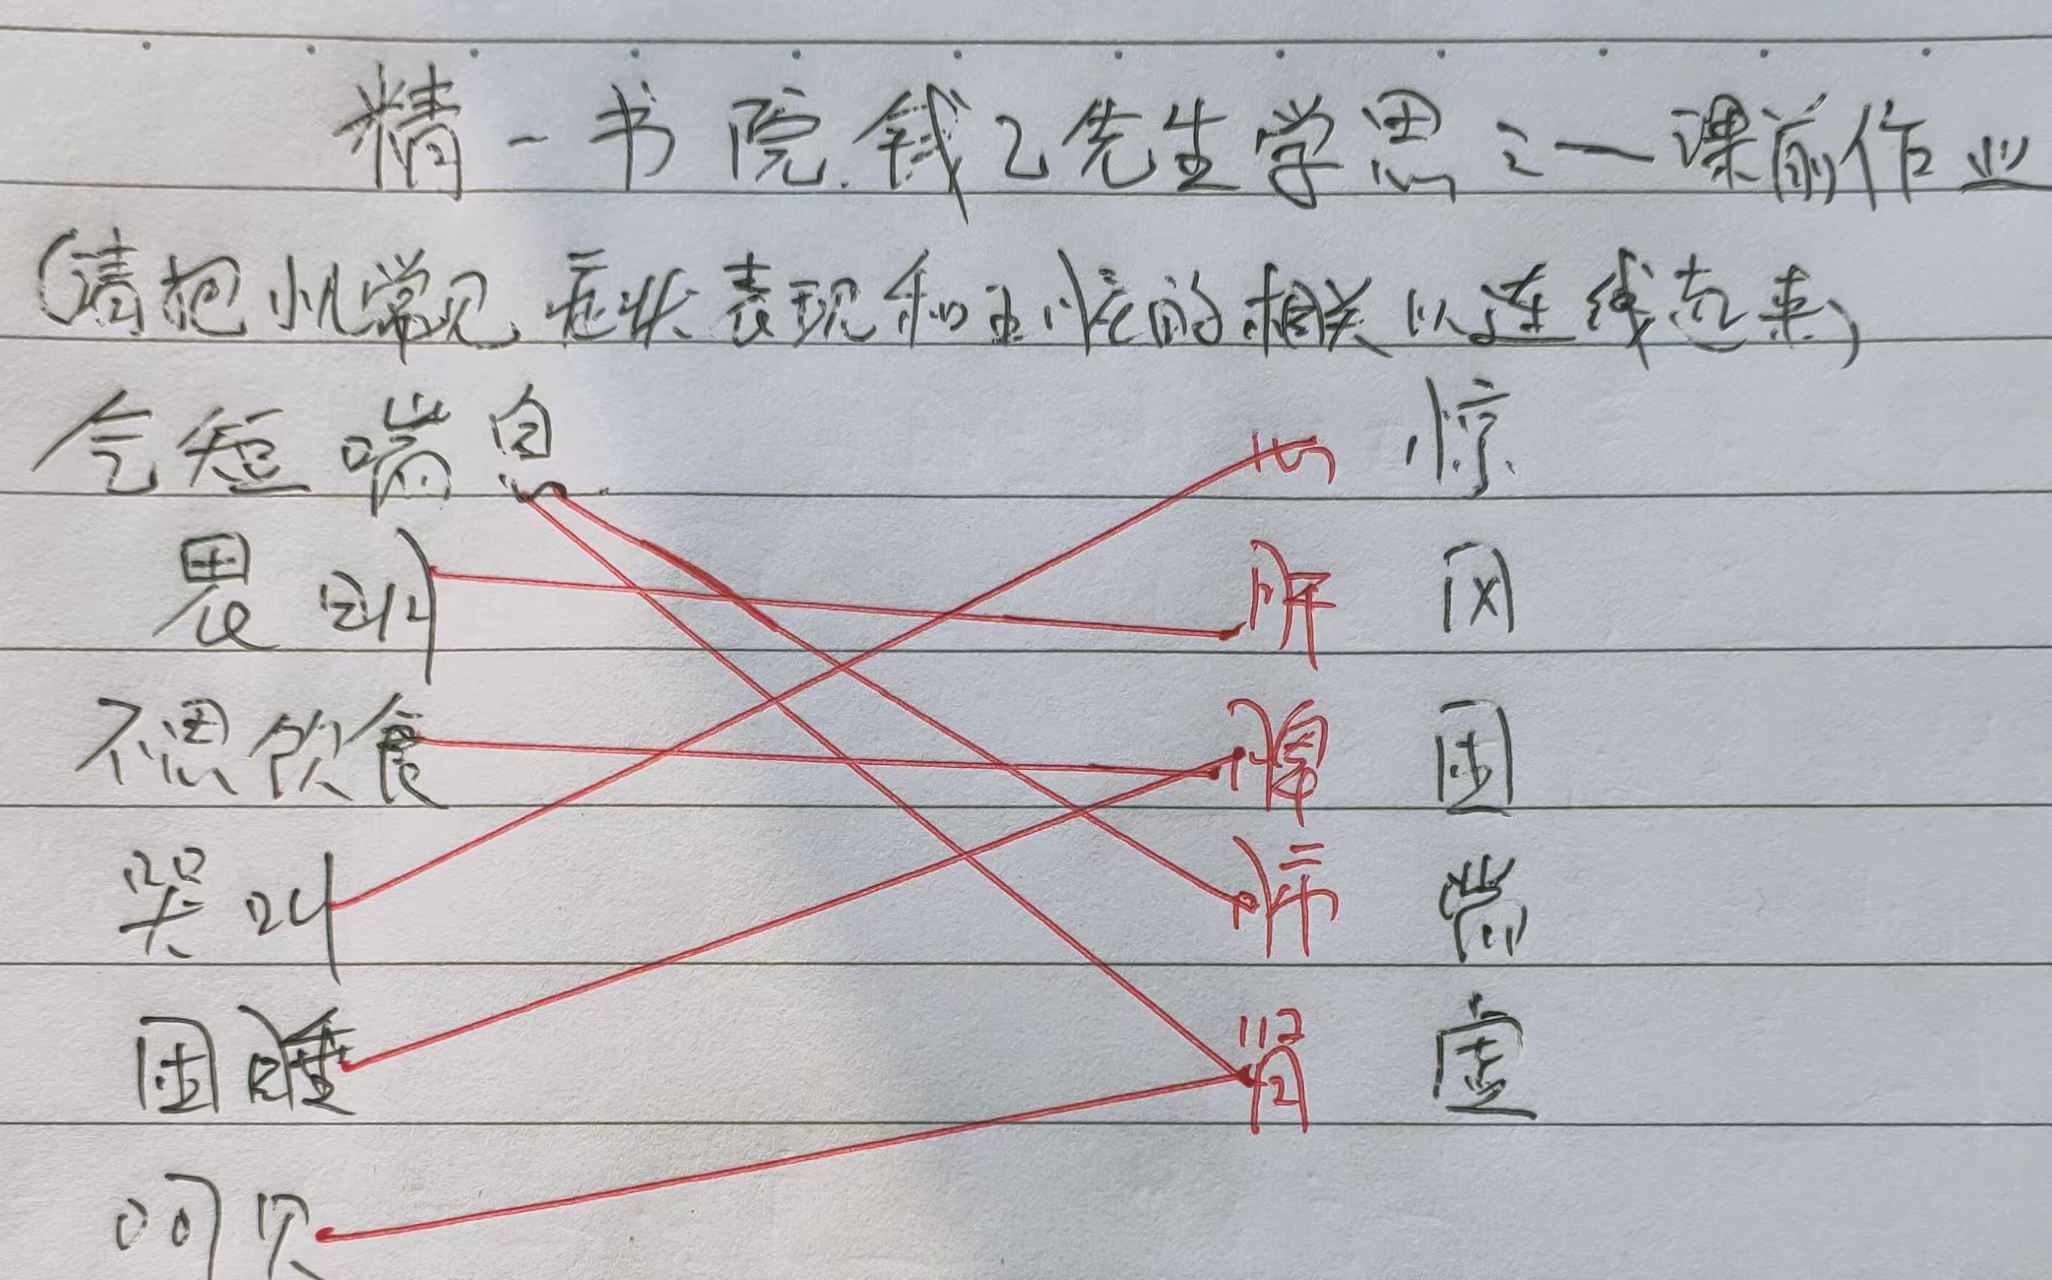 精一书院.钱乙先生学思之一课前作业
(请把小儿常见症状表现和五脏的相关以连线起来)
气短喘息 心 惊
畏叫 肝 风
不思饮食 脾 困
哭叫 肺 喘
困睡 肾 虚
呵欠